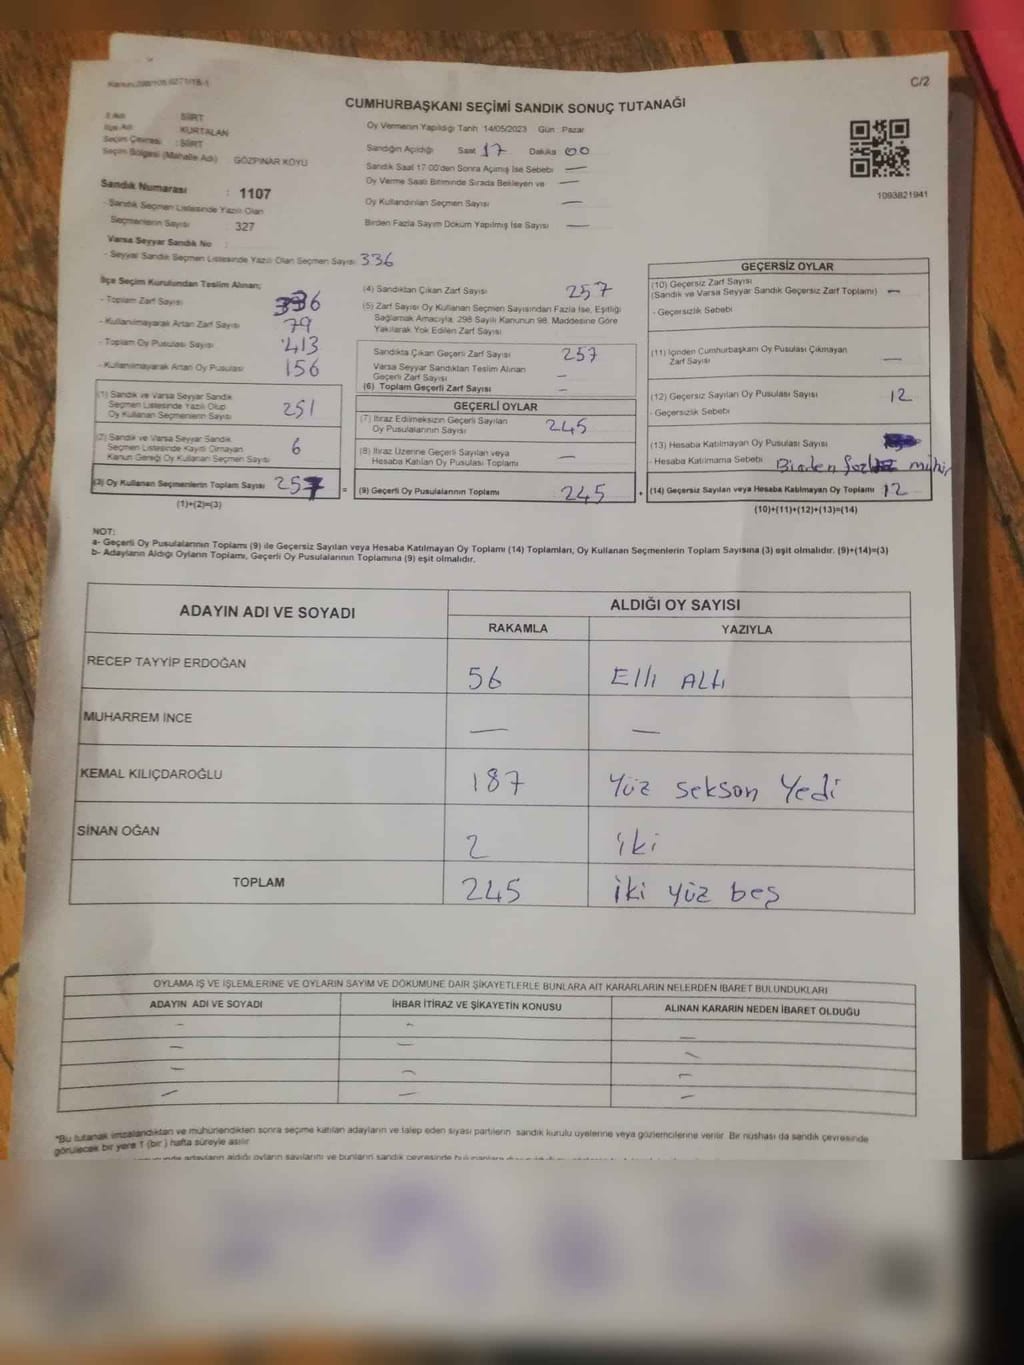 C/2
CUMHURBAŞKANI SEÇİMİ SANDIK SONUÇ TUTANAĞI
İl Adı SİİRT
İlçe Adı KURTALAN
Seçim Çevresi : SİİRT
Seçim Bölgesi (Mahalle Adı) GÖZPINAR KÖYÜ
Sandık Numarası : 1107
- Sandık Seçmen Listesinde Yazılı Olan
Seçmenlerin Sayısı : 327
Varsa Seyyar Sandık No :
- Seyyar Sandık Seçmen Listesinde Yazılı Olan Seçmen Sayısı 336
Oy Vermenin Yapıldığı Tarih 14/05/2023 Gün : Pazar
Sandığın Açıldığı Saat 17 Dakika 00
Sandık Saat 17:00'den Sonra Açılmış İse Sebebi —
Oy Verme Saati Bitiminde Sırada Bekleyen ve —
Oy Kullandırılan Seçmen Sayısı —
Birden Fazla Sayım Döküm Yapılmış İse Sayısı —
1093821941
İlçe Seçim Kurulundan Teslim Alınan;
- Toplam Zarf Sayısı 336
- Kullanılmayarak Artan Zarf Sayısı 79
- Toplam Oy Pusulası Sayısı 413
- Kullanılmayarak Artan Oy Pusulası 156
(1) Sandık ve Varsa Seyyar Sandık
Seçmen Listesinde Yazılı Olup
Oy Kullanan Seçmenlerin Sayısı 251
(2) Sandık ve Varsa Seyyar Sandık
Seçmen Listesinde Kayıtlı Olmayan
Kanun Gereği Oy Kullanan Seçmen Sayısı 6
(3) Oy Kullanan Seçmenlerin Toplam Sayısı 257 =
(1)+(2)=(3)
(4) Sandıktan Çıkan Zarf Sayısı 257
(5) Zarf Sayısı Oy Kullanan Seçmen Sayısından Fazla İse, Eşitliği
Sağlamak Amacıyla, 298 Sayılı Kanunun 98. Maddesine Göre
Yakılarak Yok Edilen Zarf Sayısı
Sandıkta Çıkan Geçerli Zarf Sayısı 257
Varsa Seyyar Sandıktan Teslim Alınan
Geçerli Zarf Sayısı —
(6) Toplam Geçerli Zarf Sayısı —
GEÇERLİ OYLAR
(7) İtiraz Edilmeksizin Geçerli Sayılan
Oy Pusulalarının Sayısı 245
(8) İtiraz Üzerine Geçerli Sayılan veya
Hesaba Katılan Oy Pusulası Toplamı —
(9) Geçerli Oy Pusulalarının Toplamı 245 +
GEÇERSİZ OYLAR
(10) Geçersiz Zarf Sayısı
(Sandık ve Varsa Seyyar Sandık Geçersiz Zarf Toplamı) —
- Geçersizlik Sebebi
(11) İçinden Cumhurbaşkanı Oy Pusulası Çıkmayan
Zarf Sayısı —
(12) Geçersiz Sayılan Oy Pusulası Sayısı 12
- Geçersizlik Sebebi
(13) Hesaba Katılmayan Oy Pusulası Sayısı
- Hesaba Katılmama Sebebi Birden fazla mühür
(14) Geçersiz Sayılan veya Hesaba Katılmayan Oy Toplamı 12
(10)+(11)+(12)+(13)=(14)
NOT:
a- Geçerli Oy Pusulalarının Toplamı (9) ile Geçersiz Sayılan veya Hesaba Katılmayan Oy Toplamı (14) Toplamları, Oy Kullanan Seçmenlerin Toplam Sayısına (3) eşit olmalıdır. (9)+(14)=(3)
b- Adayların Aldığı Oyların Toplamı, Geçerli Oy Pusulalarının Toplamına (9) eşit olmalıdır.
ADAYIN ADI VE SOYADI ALDIĞI OY SAYISI
RAKAMLA YAZIYLA
RECEP TAYYİP ERDOĞAN 56 Elli Altı
MUHARREM İNCE — —
KEMAL KILIÇDAROĞLU 187 Yüz seksan Yedi
SİNAN OĞAN 2 iki
TOPLAM 245 iki yüz beş
OYLAMA İŞ VE İŞLEMLERİNE VE OYLARIN SAYIM VE DÖKÜMÜNE DAİR ŞİKAYETLERLE BUNLARA AİT KARARLARIN NELERDEN İBARET BULUNDUKLARI
ADAYIN ADI VE SOYADI İHBAR İTİRAZ VE ŞİKAYETİN KONUSU ALINAN KARARIN NEDEN İBARET OLDUĞU
— — —
— — —
— — —
— — —
*Bu tutanak imzalandıktan ve mühürlendikten sonra seçime katılan adayların ve talep eden siyasi partilerin sandık kurulu üyelerine veya gözlemcilerine verilir. Bir nüshası da sandık çevresinde
görülecek bir yere 1 (bir) hafta süreyle asılır.